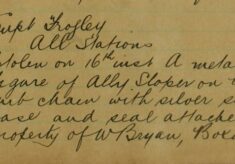 Supt Frogley
All Stations
Stolen on 16th inst A meta
figure of Ally Sloper on
curb chain with silver s
ase and seal attache
roperty of W Bryan, Boes